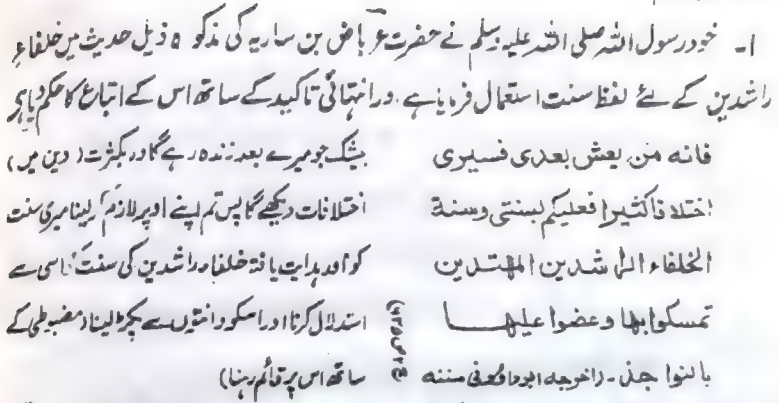 ۱۔ خود رسول اللہ صلی اللہ علیہ وسلم نے حضرت عرباض بن ساریہ کی مذکورہ ذیل حدیث میں خلفاءِ
راشدین کے لئے لفظ سنت استعمال فرمایا ہے۔ اور انتہائی تاکید کے ساتھ اس کے اتباع کا حکم دیا ہے
فانه من يعش بعدى فسيرى
اختلافا كثيرا فعليكم بسنتى وسنة
الخلفاء الراشدين المهتدين
تمسكوا بها وعضوا عليها
بالنواجذ۔ (اخرجه ابوداؤد فى سننه
بیشک جو میرے بعد زندہ رہے گا وہ بکثرت (دین میں)
اختلافات دیکھے گا پس تم اپنے اوپر لازم کرلینا میری سنت
کو اور ہدایت یافتہ خلفاء راشدین کی سنت کو اسی سے
استدلال کرنا اور اسکو دانتوں سے پکڑ لینا (مضبوطی کے
ساتھ اس پر قائم رہنا)